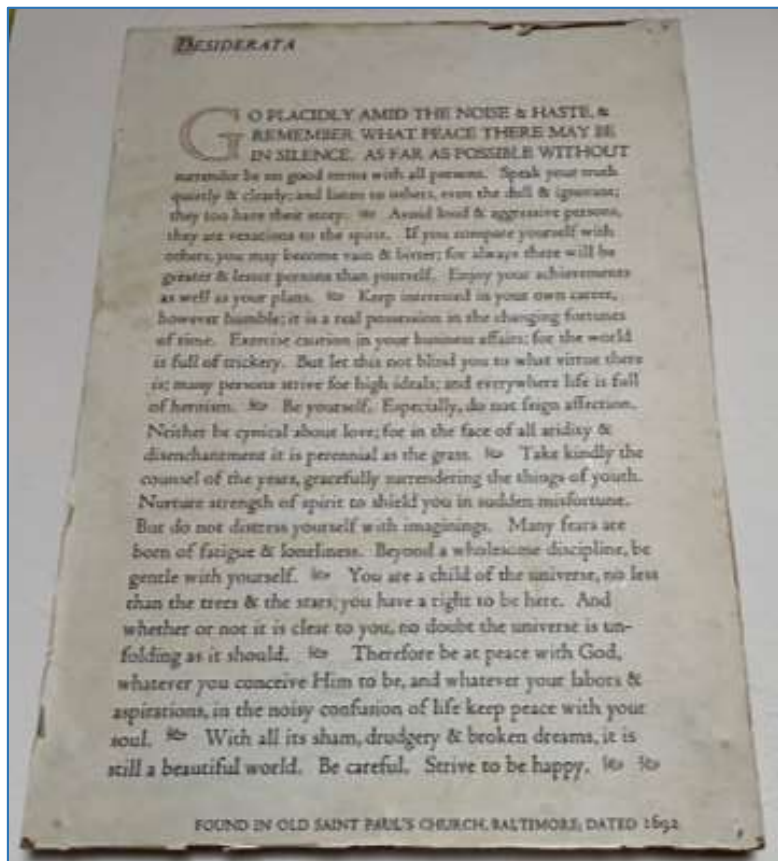 DESIDERATA
GO PLACIDLY AMID THE NOISE & HASTE, &
REMEMBER WHAT PEACE THERE MAY BE
IN SILENCE. AS FAR AS POSSIBLE WITHOUT
surrender be on good terms with all persons. Speak your truth
quietly & clearly; and listen to others, even the dull & ignorant;
they too have their story. Avoid loud & aggressive persons,
they are vexations to the spirit. If you compare yourself with
others, you may become vain & bitter; for always there will be
greater & lesser persons than yourself. Enjoy your achievements
as well as your plans. Keep interested in your own career,
however humble; it is a real possession in the changing fortunes
of time. Exercise caution in your business affairs; for the world
is full of trickery. But let this not blind you to what virtue there
is; many persons strive for high ideals; and everywhere life is full
of heroism. Be yourself. Especially, do not feign affection.
Neither be cynical about love; for in the face of all aridity &
disenchantment it is perennial as the grass. Take kindly the
counsel of the years, gracefully surrendering the things of youth.
Nurture strength of spirit to shield you in sudden misfortune.
But do not distress yourself with imaginings. Many fears are
born of fatigue & loneliness. Beyond a wholesome discipline, be
gentle with yourself. You are a child of the universe, no less
than the trees & the stars; you have a right to be here. And
whether or not it is clear to you, no doubt the universe is un-
folding as it should. Therefore be at peace with God,
whatever you conceive Him to be, and whatever your labors &
aspirations, in the noisy confusion of life keep peace with your
soul. With all its sham, drudgery & broken dreams, it is
still a beautiful world. Be careful. Strive to be happy.
FOUND IN OLD SAINT PAUL'S CHURCH, BALTIMORE; DATED 1692